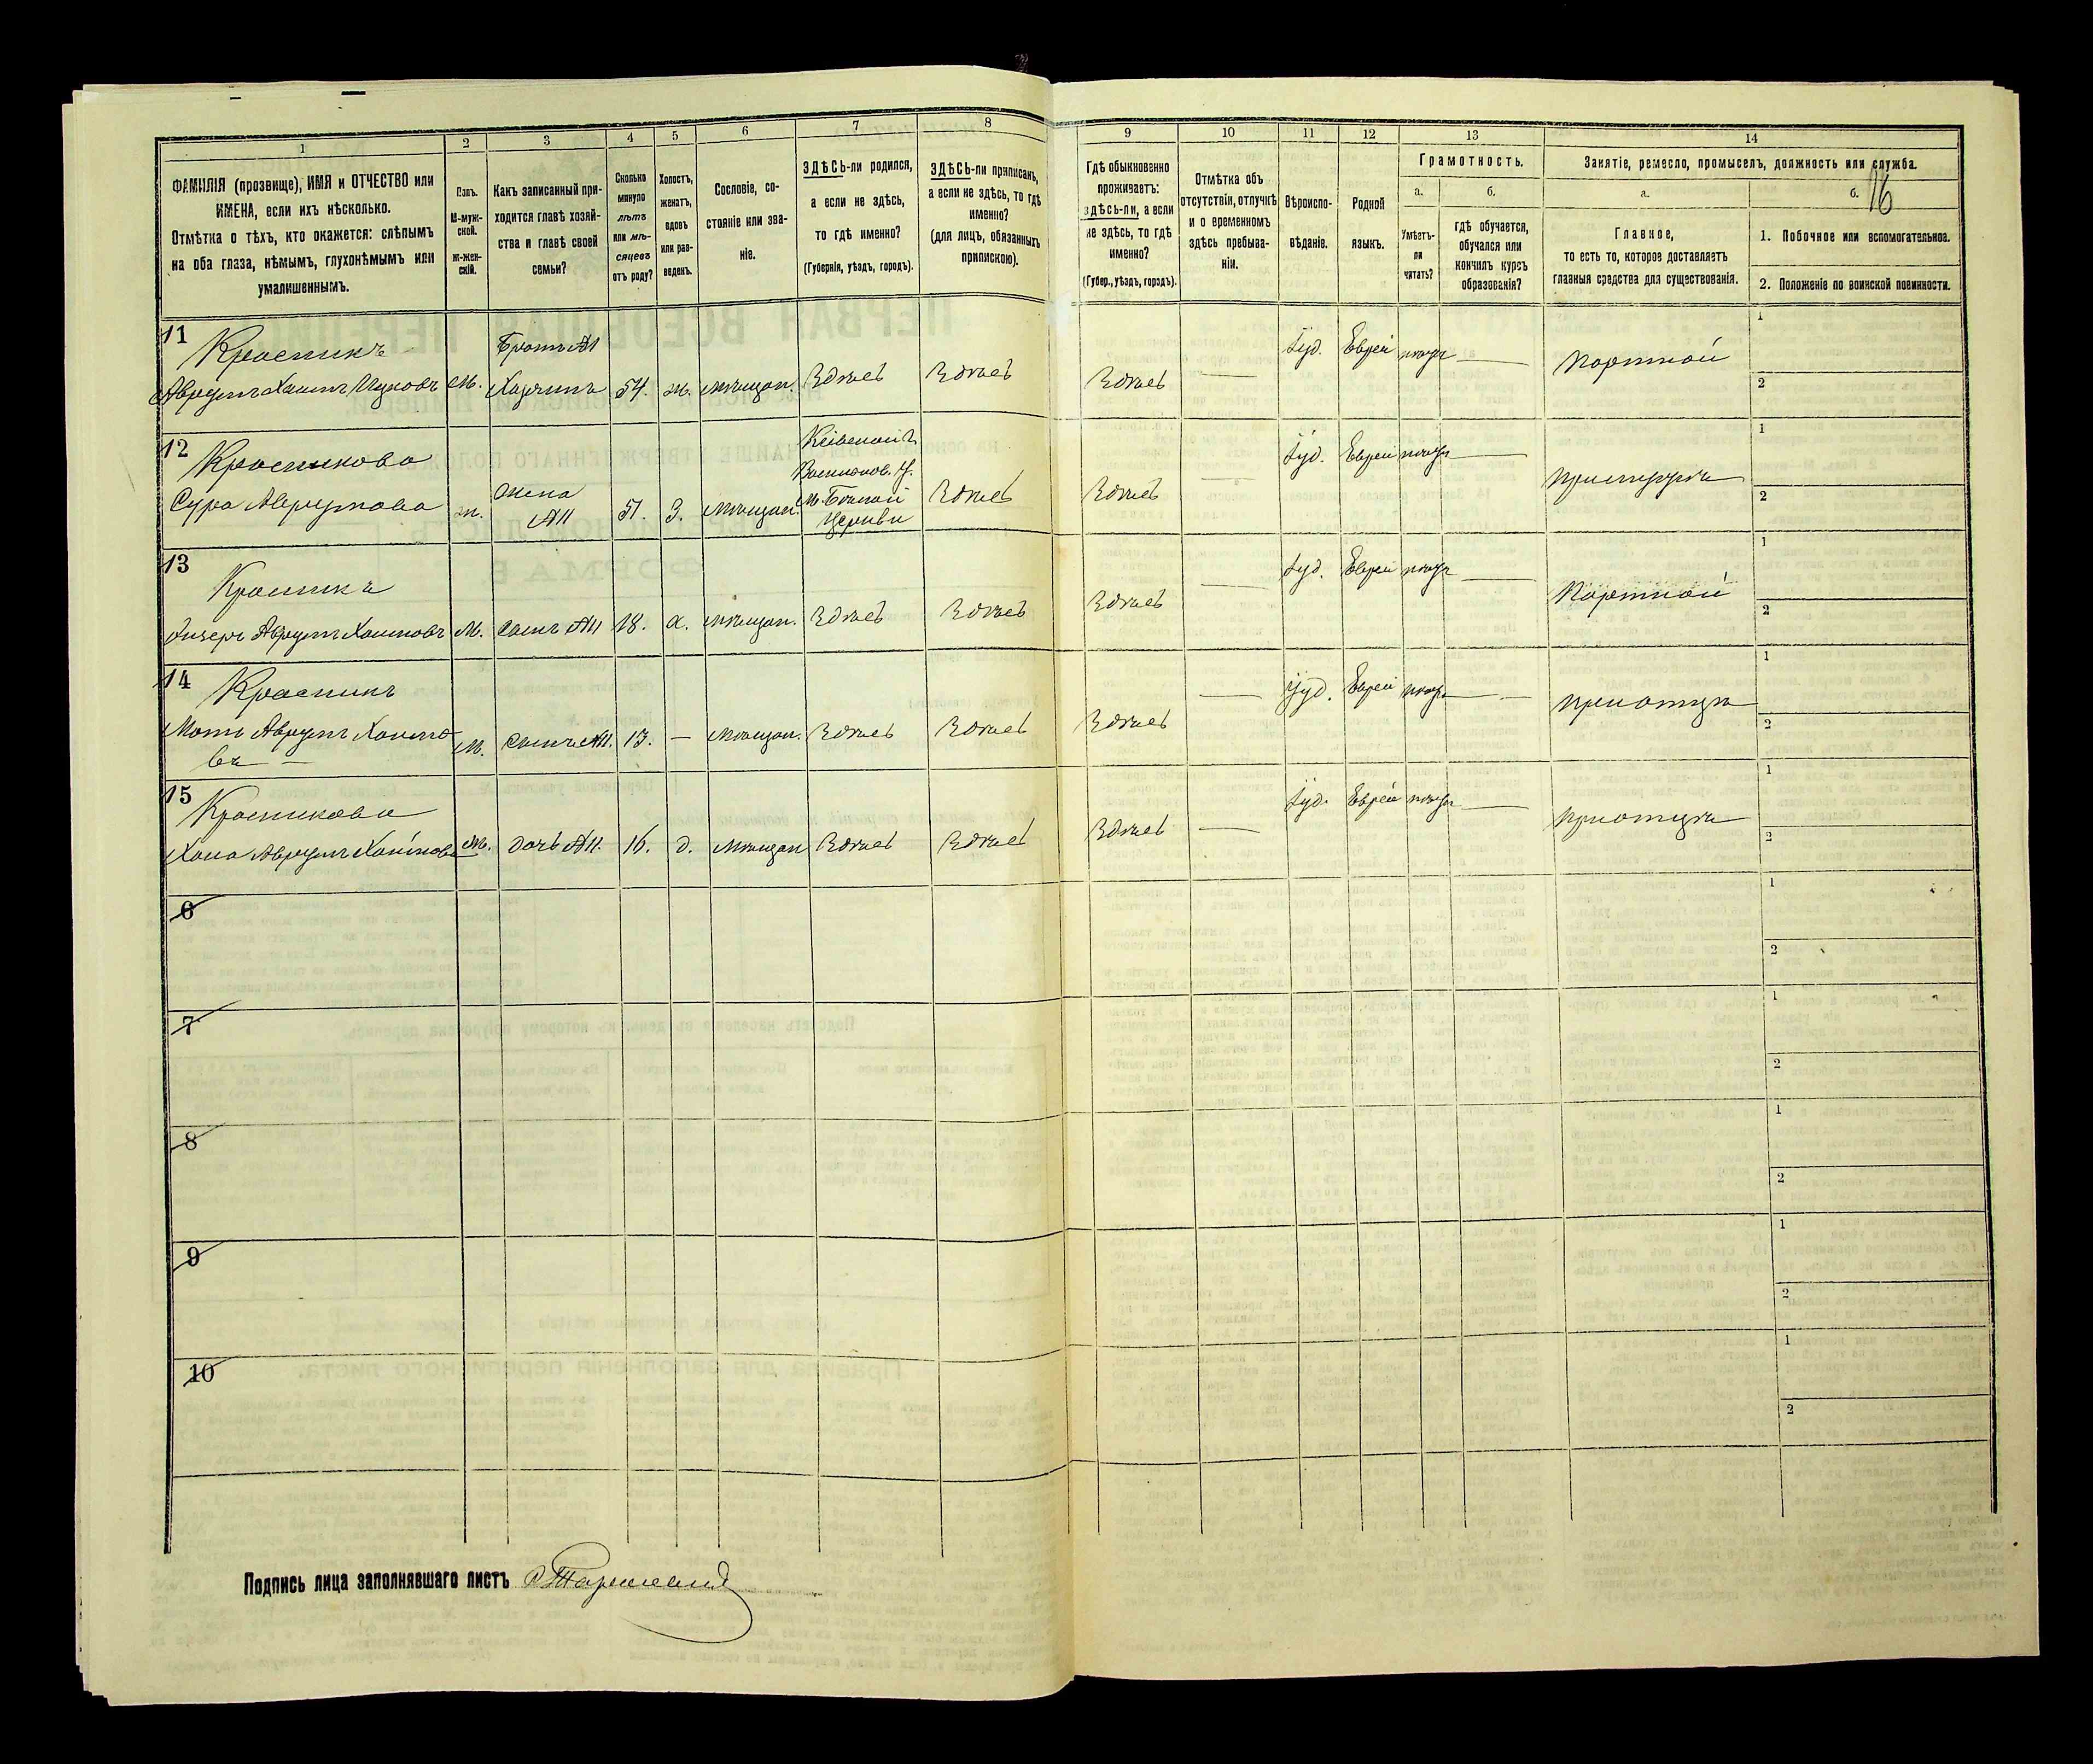 1
2
3
4
5
6
7
8
9
10
11
12
13
14
ФАМИЛІЯ (прозвище), ИМЯ и ОТЧЕСТВО или
ИМЕНА, если ихъ нѣсколько.
Отмѣтка о тѣхъ, кто окажется: слѣпымъ
на оба глаза, нѣмымъ, глухонѣмымъ или
умалишеннымъ.
Полъ.
М-муж-
ской.
Ж-жен-
скій.
Какъ записанный при-
ходится главѣ хозяй-
ства и главѣ своей
семьи?
Сколько
минуло
лѣтъ
или мѣ-
сяцевъ
отъ роду?
Холостъ,
женатъ,
вдовъ
или раз-
веденъ.
Сословіе, со-
стояніе или зва-
ніе.
ЗДѢСЬ-ли родился,
а если не здѣсь,
то гдѣ именно?
(Губернія, уѣздъ, городъ).
ЗДѢСЬ-ли приписанъ,
а если не здѣсь, то гдѣ
именно?
(для лицъ, обязанныхъ
припискою).
Гдѣ обыкновенно
проживаетъ:
здѣсь-ли, а если
не здѣсь, то гдѣ
именно?
(Губер., уѣздъ, городъ).
Отмѣтка объ
отсутствіи, отлучкѣ
и о временномъ
здѣсь пребыва-
ніи.
Вѣроиспо-
вѣданіе.
Родной
языкъ.
Грамотность.
а.
Умѣетъ-
ли
читать?
б.
гдѣ обучается,
обучался или
кончилъ курсъ
образованія?
Занятіе, ремесло, промыселъ, должность или служба.
а.
Главное,
то есть то, которое доставляетъ
главныя средства для существованія.
б.
16
1. Побочное или вспомогательное.
2. Положеніе по воинской повинности.
11
Красникъ
Аврумъ Хаимъ Ицковъ
М.
Братъ А1
54.
ж.
мѣщан.
Здѣсь
Здѣсь
Здѣсь
—
Іуд.
Еврей
—
Портной
1
2
12
Красникова
Сура Аврумова
ж.
жена
А11
51.
З.
мѣщан.
Кіевской г.
Васильков. у.
м. Бѣлой
Церкви
Здѣсь
Здѣсь
—
Іуд.
Еврей
—
при мужѣ
1
2
13
Красникъ
Аврумъ Хаимовъ
М.
сынъ А11
18.
х.
мѣщан.
Здѣсь
Здѣсь
Здѣсь
—
Іуд.
Еврей
—
Портной
1
2
14
Красникъ
Мот Аврумъ Хаимо
въ —
М.
сынъ А11.
13.
—
мѣщан.
Здѣсь
Здѣсь
Здѣсь
—
Іуд.
Еврей
—
при отцѣ
1
2
15
Красникова
Хана Аврумъ Хаимова
ж.
дочь А11.
16.
д.
мѣщан
Здѣсь
Здѣсь
Здѣсь
—
Іуд.
Еврей
—
при отцѣ
1
2
6
1
2
7
1
2
8
1
2
9
1
2
10
1
2
Подпись лица заполнявшаго листъ